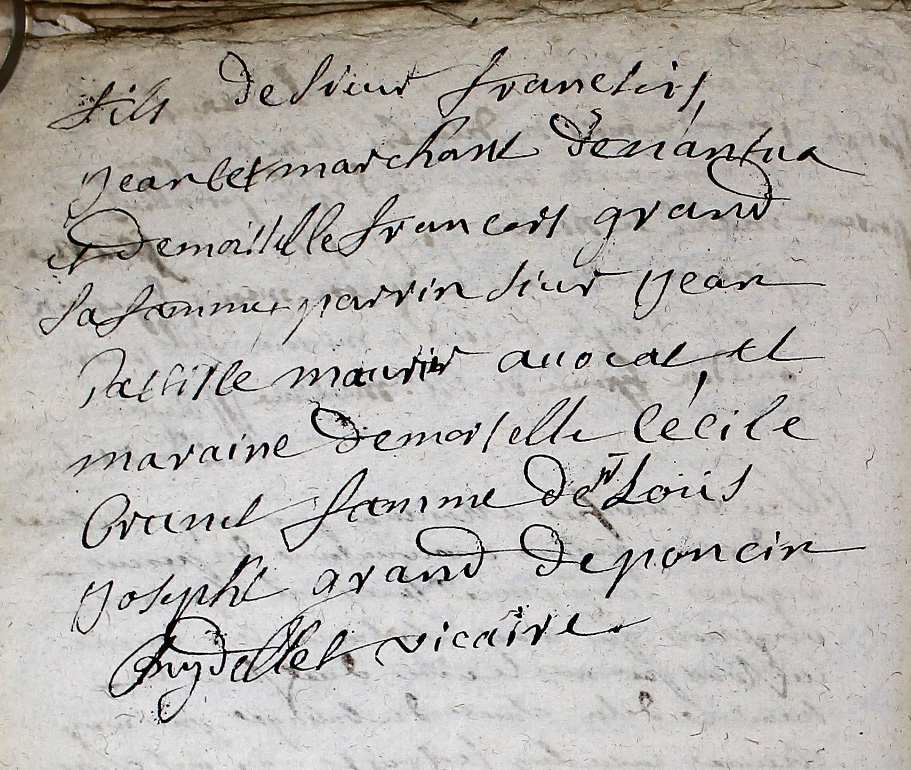 fils de sieur francois
jean bet marchant de nantua
et demoiselle francoise grand
sa famme parrin sieur jean
Batiste maurier auocat et
maraine demoiselle Cécile
Brunet famme de Sr Louis
josephe grand de poncin
vicaire